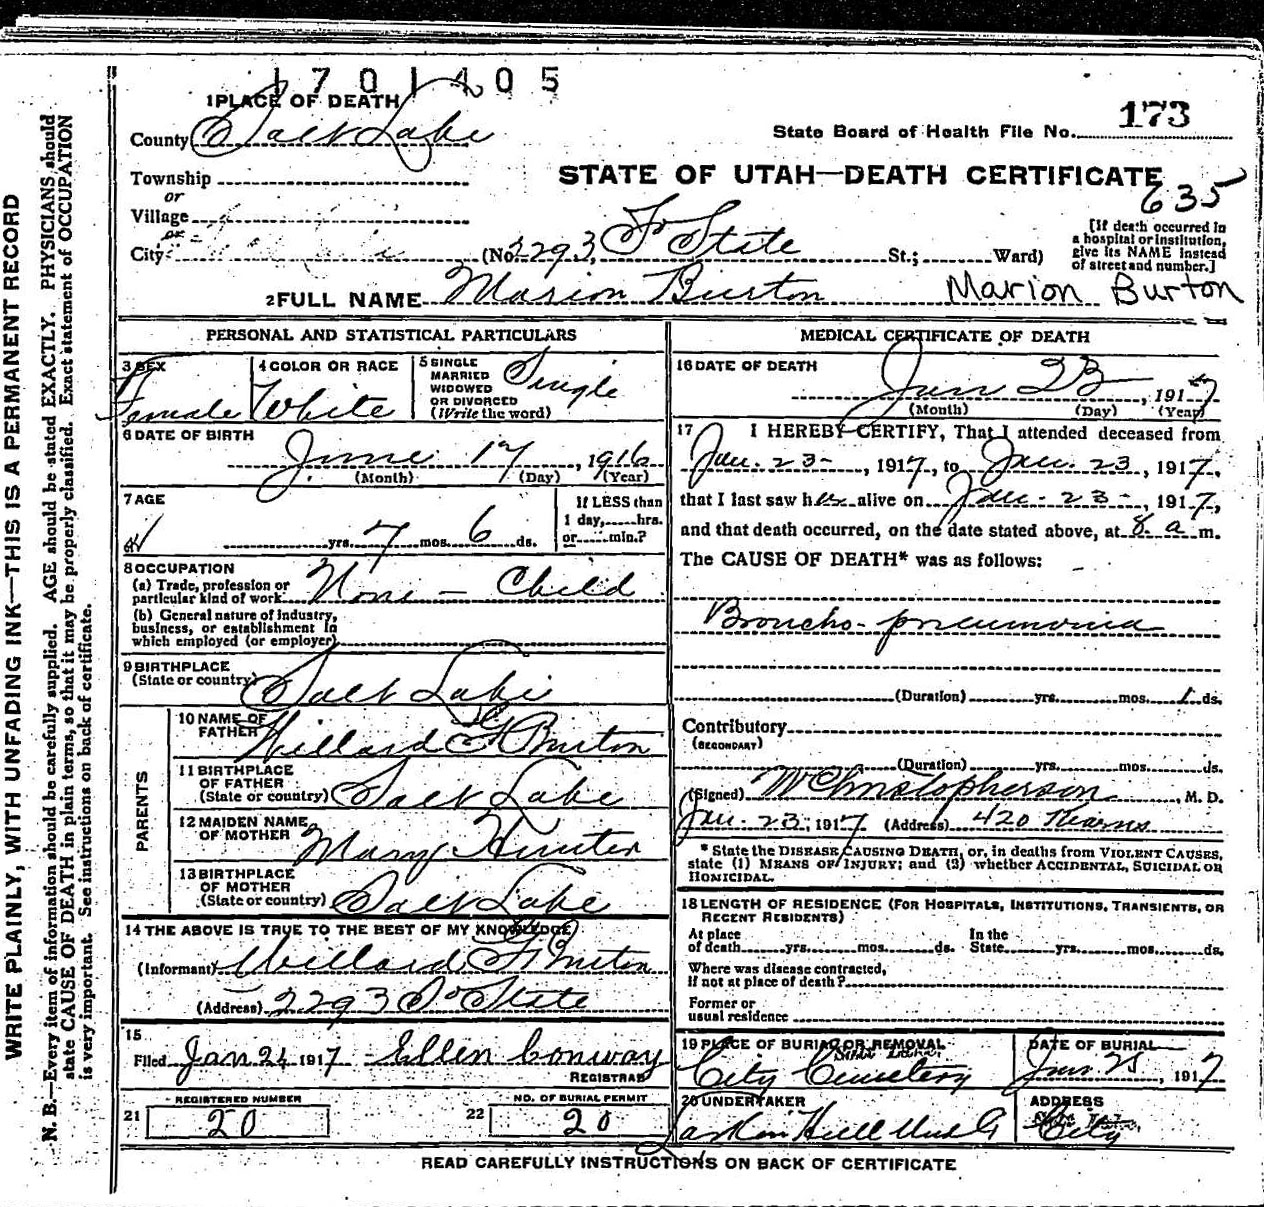 1701405
1 PLACE OF DEATH
County Salt Lake
State Board of Health File No. 173
Township
or
Village
or
City
STATE OF UTAH—DEATH CERTIFICATE
635
(No. 2293 So State St.; Ward)
[If death occurred in
a hospital or institution,
give its NAME instead
of street and number.]
2 FULL NAME Marion Burton Marion Burton
PERSONAL AND STATISTICAL PARTICULARS
3 SEX
Female
4 COLOR OR RACE
White
5 SINGLE
MARRIED
WIDOWED
OR DIVORCED
(Write the word)
Single
6 DATE OF BIRTH
June 17, 1916
(Month) (Day) (Year)
7 AGE
yrs. 7 mos. 6 ds.
If LESS than
1 day, hrs.
or min.?
8 OCCUPATION
(a) Trade, profession or
particular kind of work None - Child
(b) General nature of industry,
business, or establishment in
which employed (or employer)
9 BIRTHPLACE
(State or country) Salt Lake
PARENTS
10 NAME OF
FATHER Willard G Burton
11 BIRTHPLACE
OF FATHER
(State or country) Salt Lake
12 MAIDEN NAME
OF MOTHER Mary Hunter
13 BIRTHPLACE
OF MOTHER
(State or country) Salt Lake
14 THE ABOVE IS TRUE TO THE BEST OF MY KNOWLEDGE
(Informant) Willard G Burton
(Address) 2293 So State
15
Filed Jan 24 1917 Ellen Conway
REGISTRAR
REGISTERED NUMBER
21 20
NO. OF BURIAL PERMIT
22 20
MEDICAL CERTIFICATE OF DEATH
16 DATE OF DEATH
Jan 23, 1917
(Month) (Day) (Year)
17 I HEREBY CERTIFY, That I attended deceased from
Jan. 23-, 1917, to Jan. 23, 1917,
that I last saw her alive on Jan. 23-, 1917,
and that death occurred, on the date stated above, at 8 a m.
The CAUSE OF DEATH* was as follows:
Broncho-pneumonia
(Duration) yrs. mos. 1 ds.
Contributory
(SECONDARY)
(Duration) yrs. mos. ds.
(Signed) W Christopherson, M. D.
Jan. 23, 1917 (Address) 420 Kearns
* State the DISEASE CAUSING DEATH, or, in deaths from VIOLENT CAUSES,
state (1) MEANS OF INJURY; and (2) whether ACCIDENTAL, SUICIDAL OR
HOMICIDAL.
18 LENGTH OF RESIDENCE (FOR HOSPITALS, INSTITUTIONS, TRANSIENTS, OR
RECENT RESIDENTS)
At place
of death yrs. mos. ds.
In the
State yrs. mos. ds.
Where was disease contracted,
If not at place of death?
Former or
usual residence
19 PLACE OF BURIAL OR REMOVAL
City Cemetery
DATE OF BURIAL
Jan 25, 1917
20 UNDERTAKER
ADDRESS
City
READ CAREFULLY INSTRUCTIONS ON BACK OF CERTIFICATE
WRITE PLAINLY, WITH UNFADING INK—THIS IS A PERMANENT RECORD
N. B.—Every item of information should be carefully supplied. AGE should be stated EXACTLY. PHYSICIANS should
state CAUSE OF DEATH in plain terms, so that it may be properly classified. Exact statement of OCCUPATION
is very important. See instructions on back of certificate.